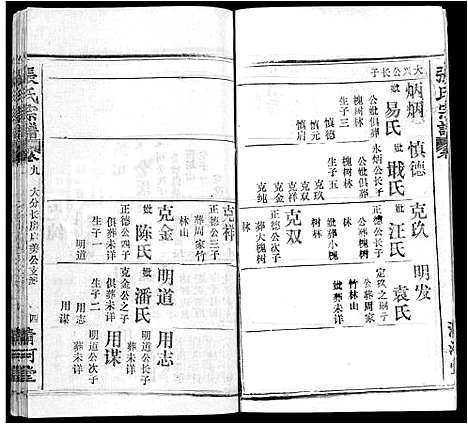 張氏宗譜
大兴公长子
炳炳
妣易氏
公妣俱葬
槐树林
生子三
慎德
慎元
慎启
慎德
妣戢氏
永炳公长子
公妣俱葬
槐树林
生子五
克玖
克双
克祥
克金
克纯
克玖
妣汪氏
正德公长子
公葬槐树
林
妣葬小槐
树林
克双
正德公次子
葬大槐树
林
明发
妣袁氏
定玖之嗣子
公葬周家
竹林山
妣葬未详
克祥
正德公三子
葬周家竹
林山
克金
妣陈氏
正德公四子
俱葬未详
生子一
明道
明道
妣潘氏
克金公之子
俱葬未详
生子二
用志
用谋
用志
明道公长子
葬未详
用谋
明道公次子
葬未详
張氏宗譜
卷九
大分长房
公支
四
清河堂